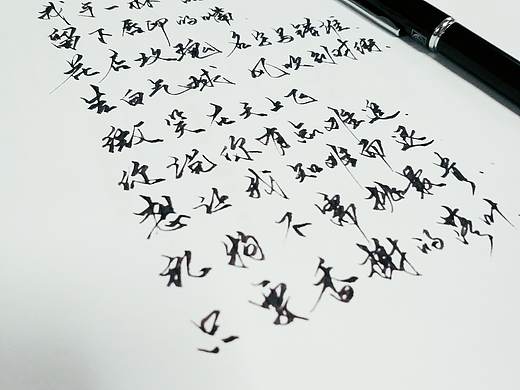 我手一杯
留下唇印的嘴
花店玫瑰 名字写错谁
告白气球 风吹到对街
微笑在天上飞
你说你有点难追
想让我知难而退
礼物不需挑最贵
只要香榭的落叶